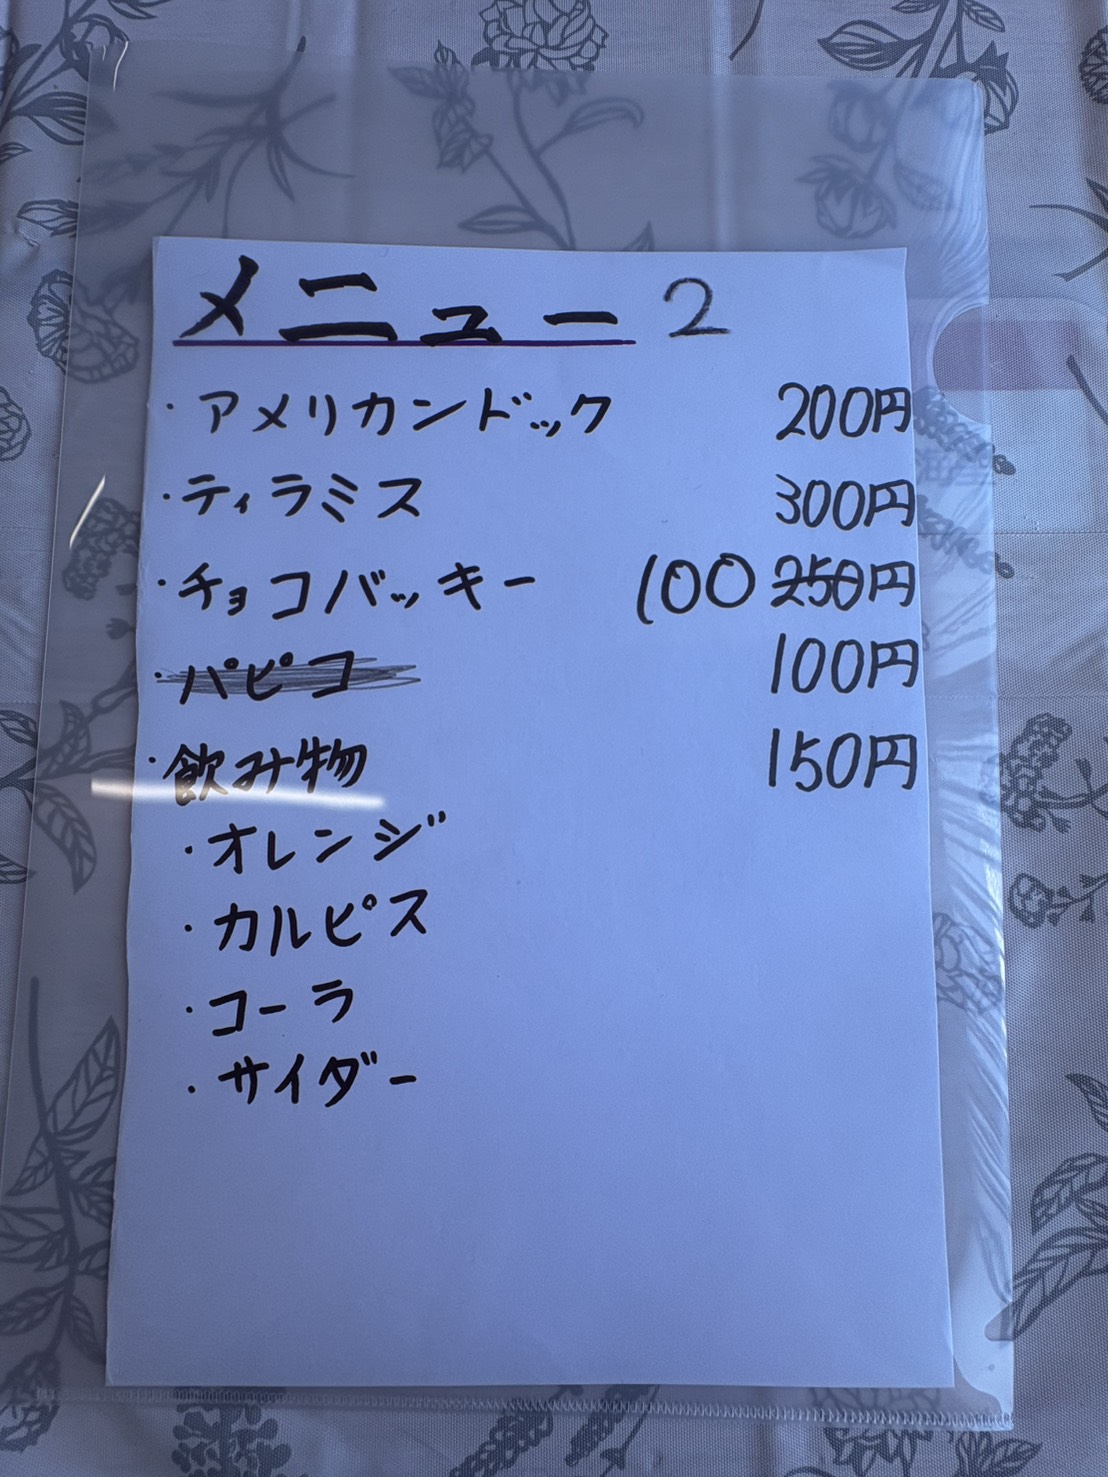 メニュー 2
・アメリカンドック 200円
・ティラミス 300円
・チョコバッキー 100 250円
・パピコ 100円
・飲み物 150円
・オレンジ
・カルピス
・コーラ
・サイダー